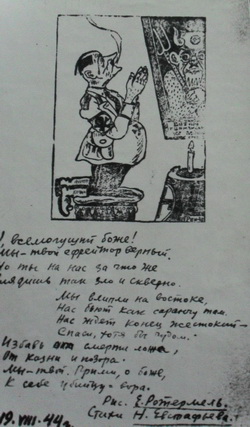 О, всемогущий боже!
Мы - твой ефрейтор верный.
Но ты на нас за что же
глядишь так зло и скверно.
Мы влипли на востоке,
Нас бьют как саранчу там.
Нас ждет конец жестокий -
Спаси, хотя бы чудом.
Избавь от смерти ложа,
От казни и позора.
Мы - твой. Прими, о боже,
К себе убийцу - вора.
Рис. Е. Ротермель.
Стихи Н. Евстафьева.
19.VIII.44 г.